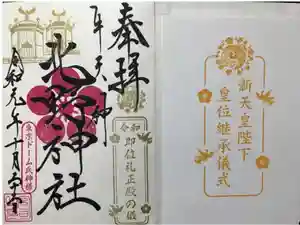 奉拝
牛天神
北野神社
令和元年十月
東京ドーム氏神様
令和
即位礼正殿の儀
新天皇陛下
皇位継承儀式